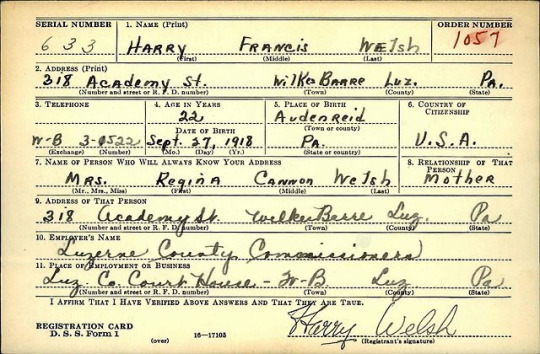 SERIAL NUMBER 1. NAME (Print) ORDER NUMBER
633 HARRY FRANCIS WELSH 1057
(First) (Middle) (Last)
2. ADDRESS (Print)
318 ACADEMY ST. WILKES BARRE LUZ. PA.
(Number and street or R. F. D. number) (Town) (County) (State)
3. TELEPHONE 4. AGE IN YEARS 5. PLACE OF BIRTH 6. COUNTRY OF CITIZENSHIP
22 AUDENREID
DATE OF BIRTH (Town or county)
W-B 3-0522 Sept. 27, 1918 PA. U.S.A.
(Exchange) (Number) (Mo.) (Day) (Yr.) (State or country)
7. NAME OF PERSON WHO WILL ALWAYS KNOW YOUR ADDRESS 8. RELATIONSHIP OF THAT PERSON
MRS. REGINA CANNON WELSH MOTHER
(Mr., Mrs., Miss) (First) (Middle) (Last)
9. ADDRESS OF THAT PERSON
318 Academy St. Wilkes Barre Luz. Pa
(Number and street or R. F. D. number) (Town) (County) (State)
10. EMPLOYER'S NAME
Luzerne County Commissioners
11. PLACE OF EMPLOYMENT OR BUSINESS
Luz Co. Court House - W-B Luz Pa
(Number and street or R. F. D. number) (Town) (County) (State)
I AFFIRM THAT I HAVE VERIFIED ABOVE ANSWERS AND THAT THEY ARE TRUE.
REGISTRATION CARD Harry Welsh
D. S. S. Form 1 (over) 16—17105 (Registrant's signature)